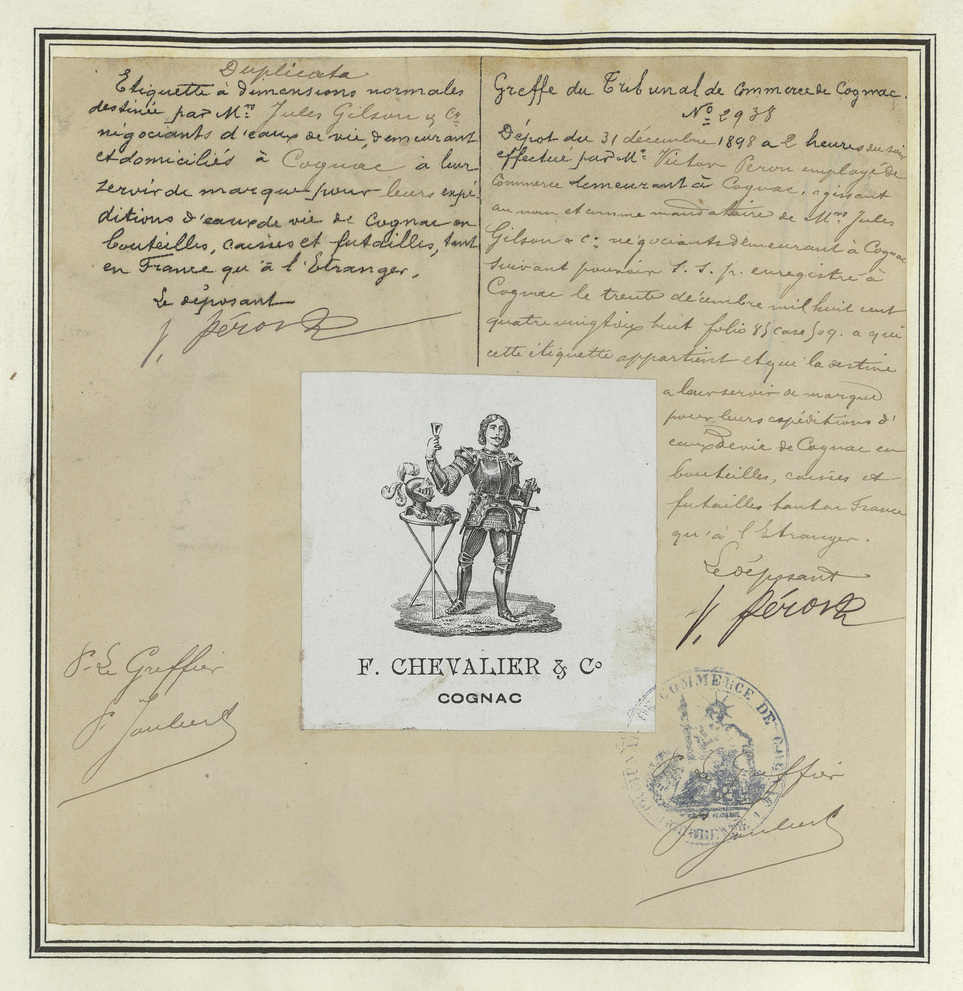 Duplicata
Etiquette à dimensions normales
destinée par Mrs Jules Gilson & Co
négociants d'eaux de vie, demeurant
et domiciliés à Cognac à leur
servir de marque pour leurs expé-
ditions d'eaux de vie de Cognac en
bouteilles, caisses et futailles, tant
en France qu'à l'Etranger,
Le déposant
V. Péron
Greffe du Tribunal de Commerce de Cognac.
No 2938
Dépot du 31 décembre 1898 a 2 heures du soir
effectué par Mr Victor Péron employé de
Commerce demeurant à Cognac, agissant
au nom et comme mandataire de Mrs Jules
Gilson & Co négociants demeurant à Cognac
suivant pouvoir S. S. p. enregistré à
Cognac le trente décembre mil huit cent
quatre vingt dix huit folio 85 case 509. a qui
cette étiquette appartient et qui la destine
a leur servir de marque
pour leurs expéditions d'
eaux de vie de Cognac en
bouteilles, caisses et
futailles tant en France
qu'à l'Etranger.
Le déposant
V. Péron
F. CHEVALIER & Co
COGNAC
P. Le Greffier
P. Joubert
TRIBUNAL DE COMMERCE DE COGNAC
Greffier
Joubert